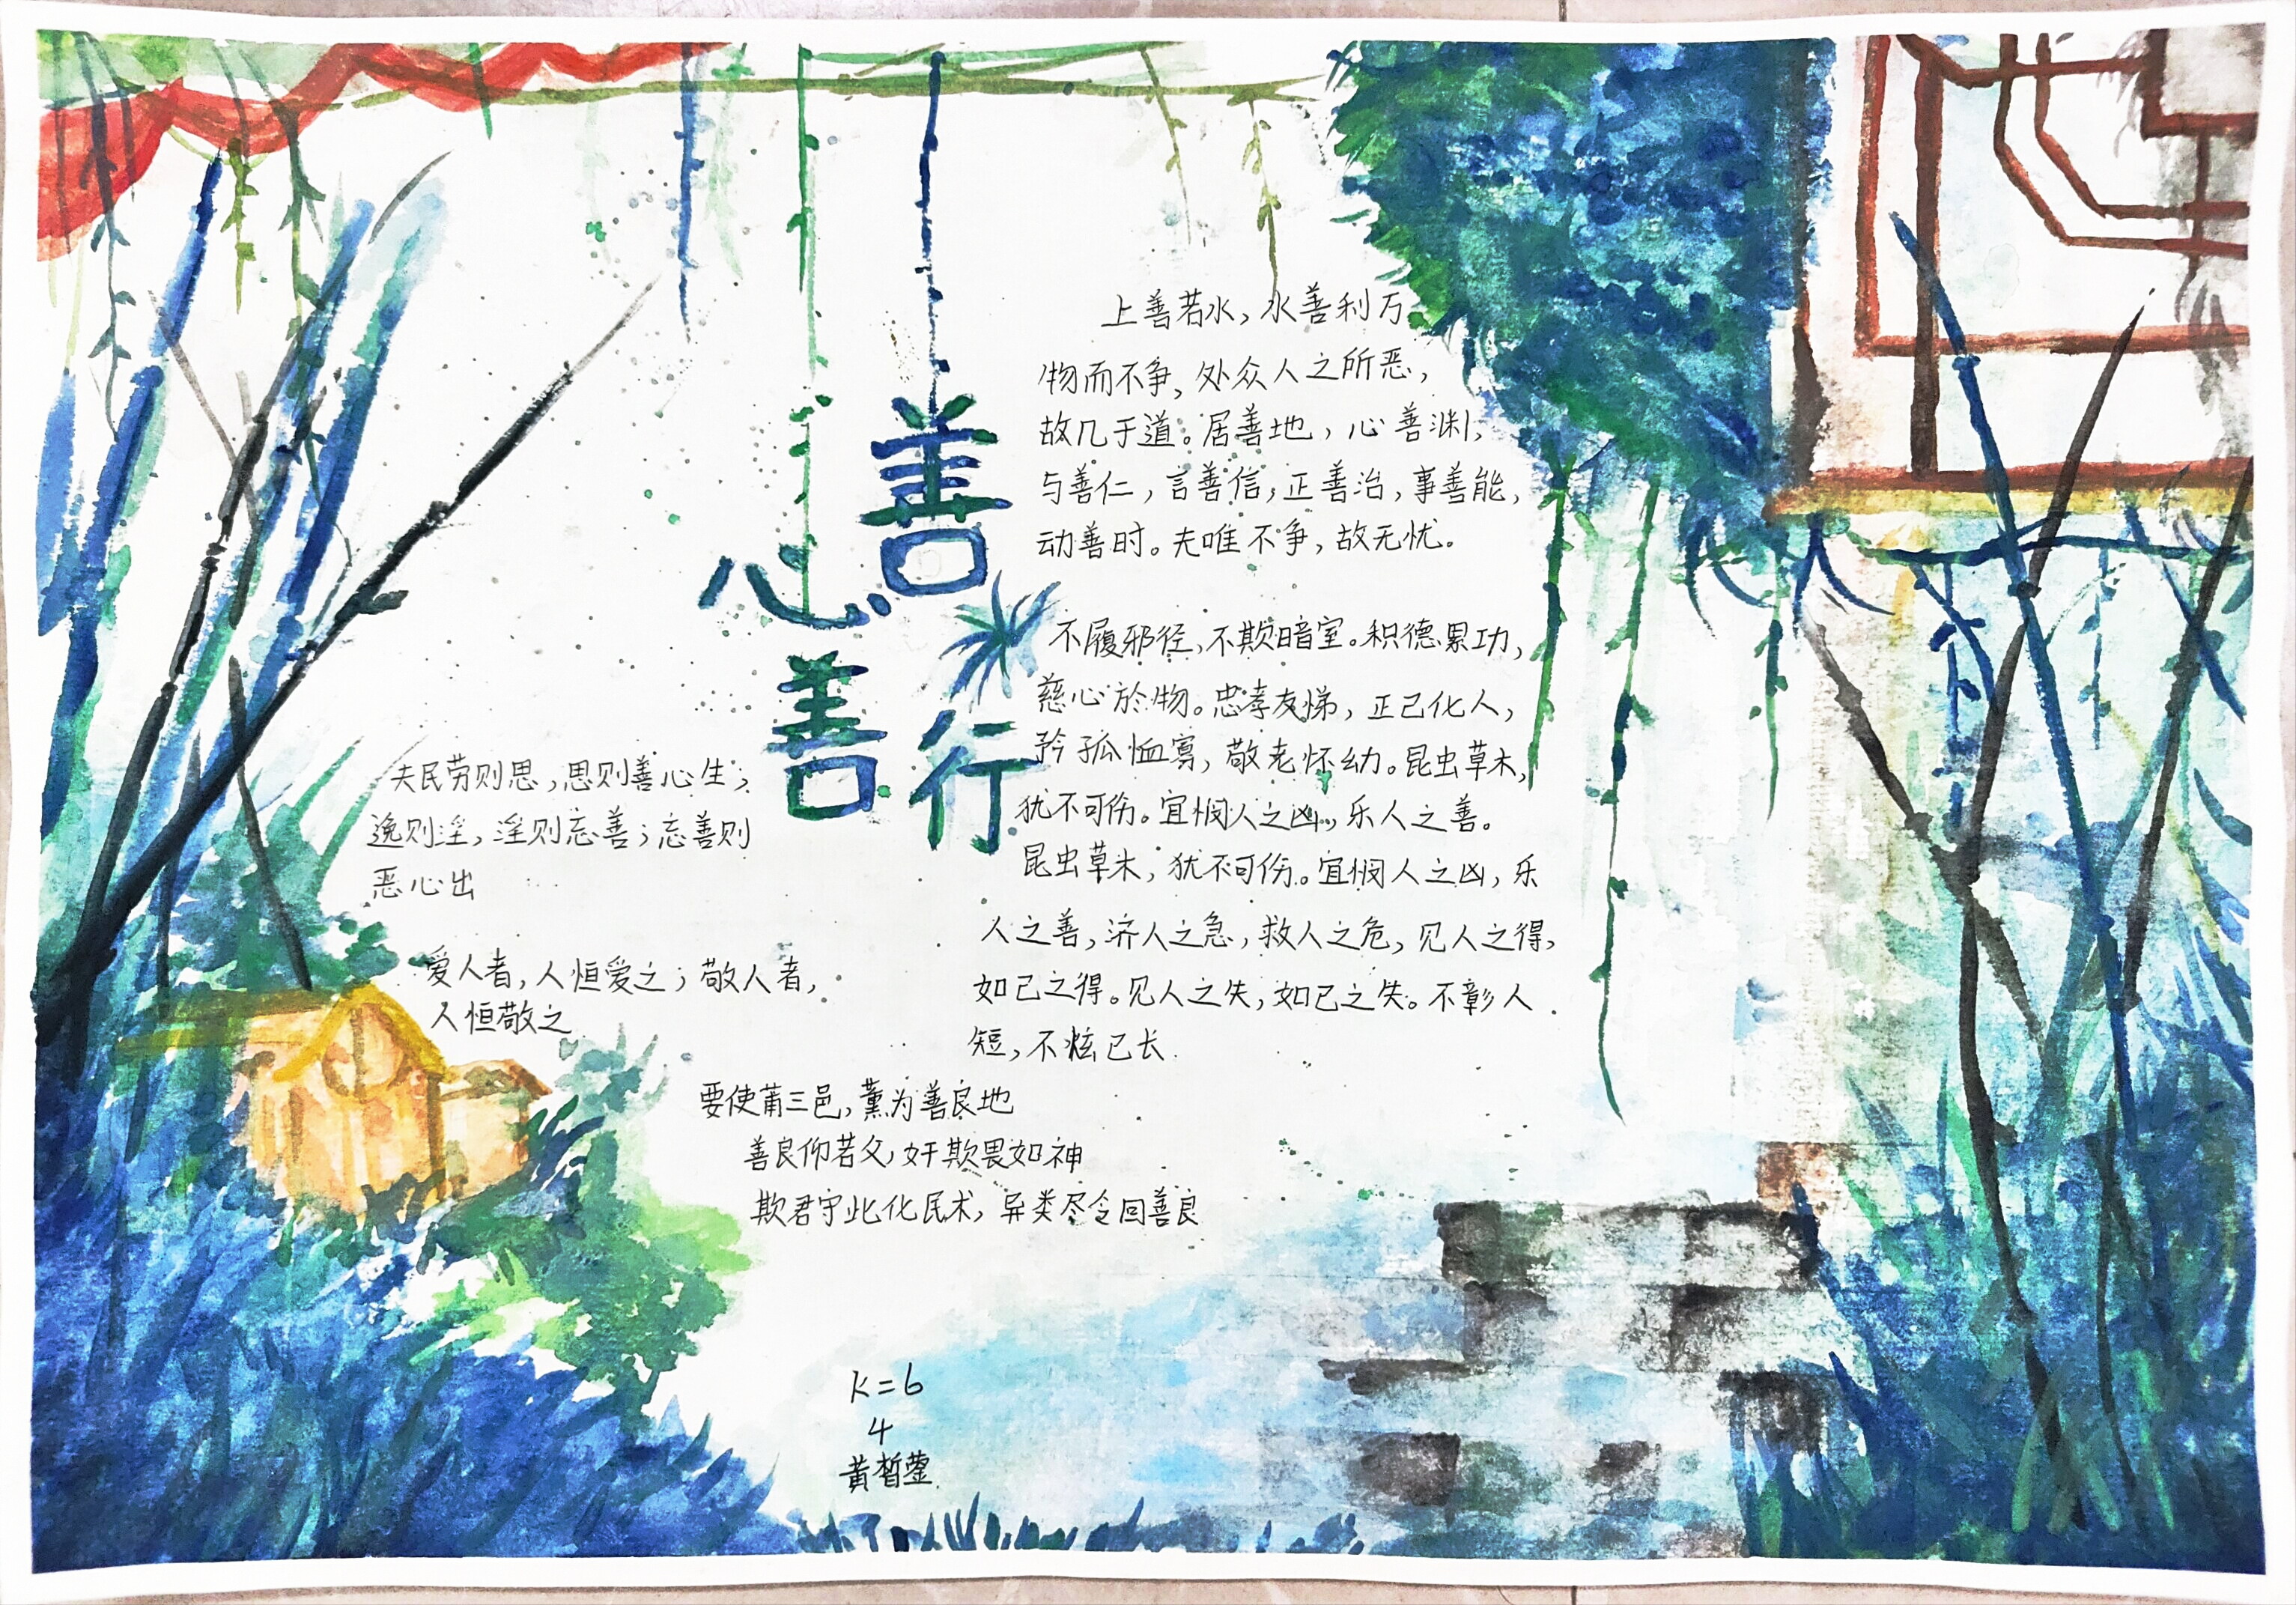 善行
心善
上善若水，水善利万
物而不争，处众人之所恶，
故几于道。居善地，心善渊，
与善仁，言善信，正善治，事善能，
动善时。夫唯不争，故无忧。
不履邪径，不欺暗室。积德累功，
慈心於物。忠孝友悌，正己化人，
矜孤恤寡，敬老怀幼。昆虫草木，
犹不可伤。宜悯人之凶，乐人之善。
昆虫草木，犹不可伤。宜悯人之凶，乐
人之善，济人之急，救人之危，见人之得，
如己之得。见人之失，如己之失。不彰人
短，不炫己长.
夫民劳则思，思则善心生；
逸则淫，淫则忘善；忘善则
恶心出
爱人者，人恒爱之；敬人者，
人恒敬之
要使莆三邑，薰为善良地
善良仰若父，奸欺畏如神
欺君守此化民术，异类尽令回善良
K=6
4
黄皙蓥